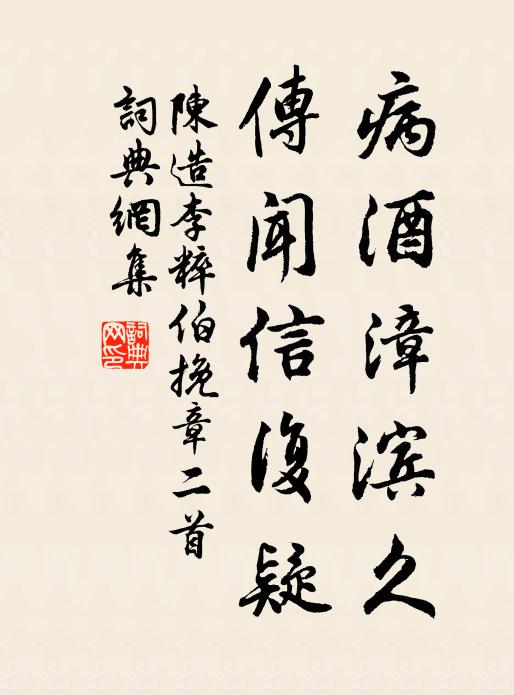 病酒漳滨久
傳聞信復疑
陳造李粹伯挽章二首
詞典網集
詞典网印